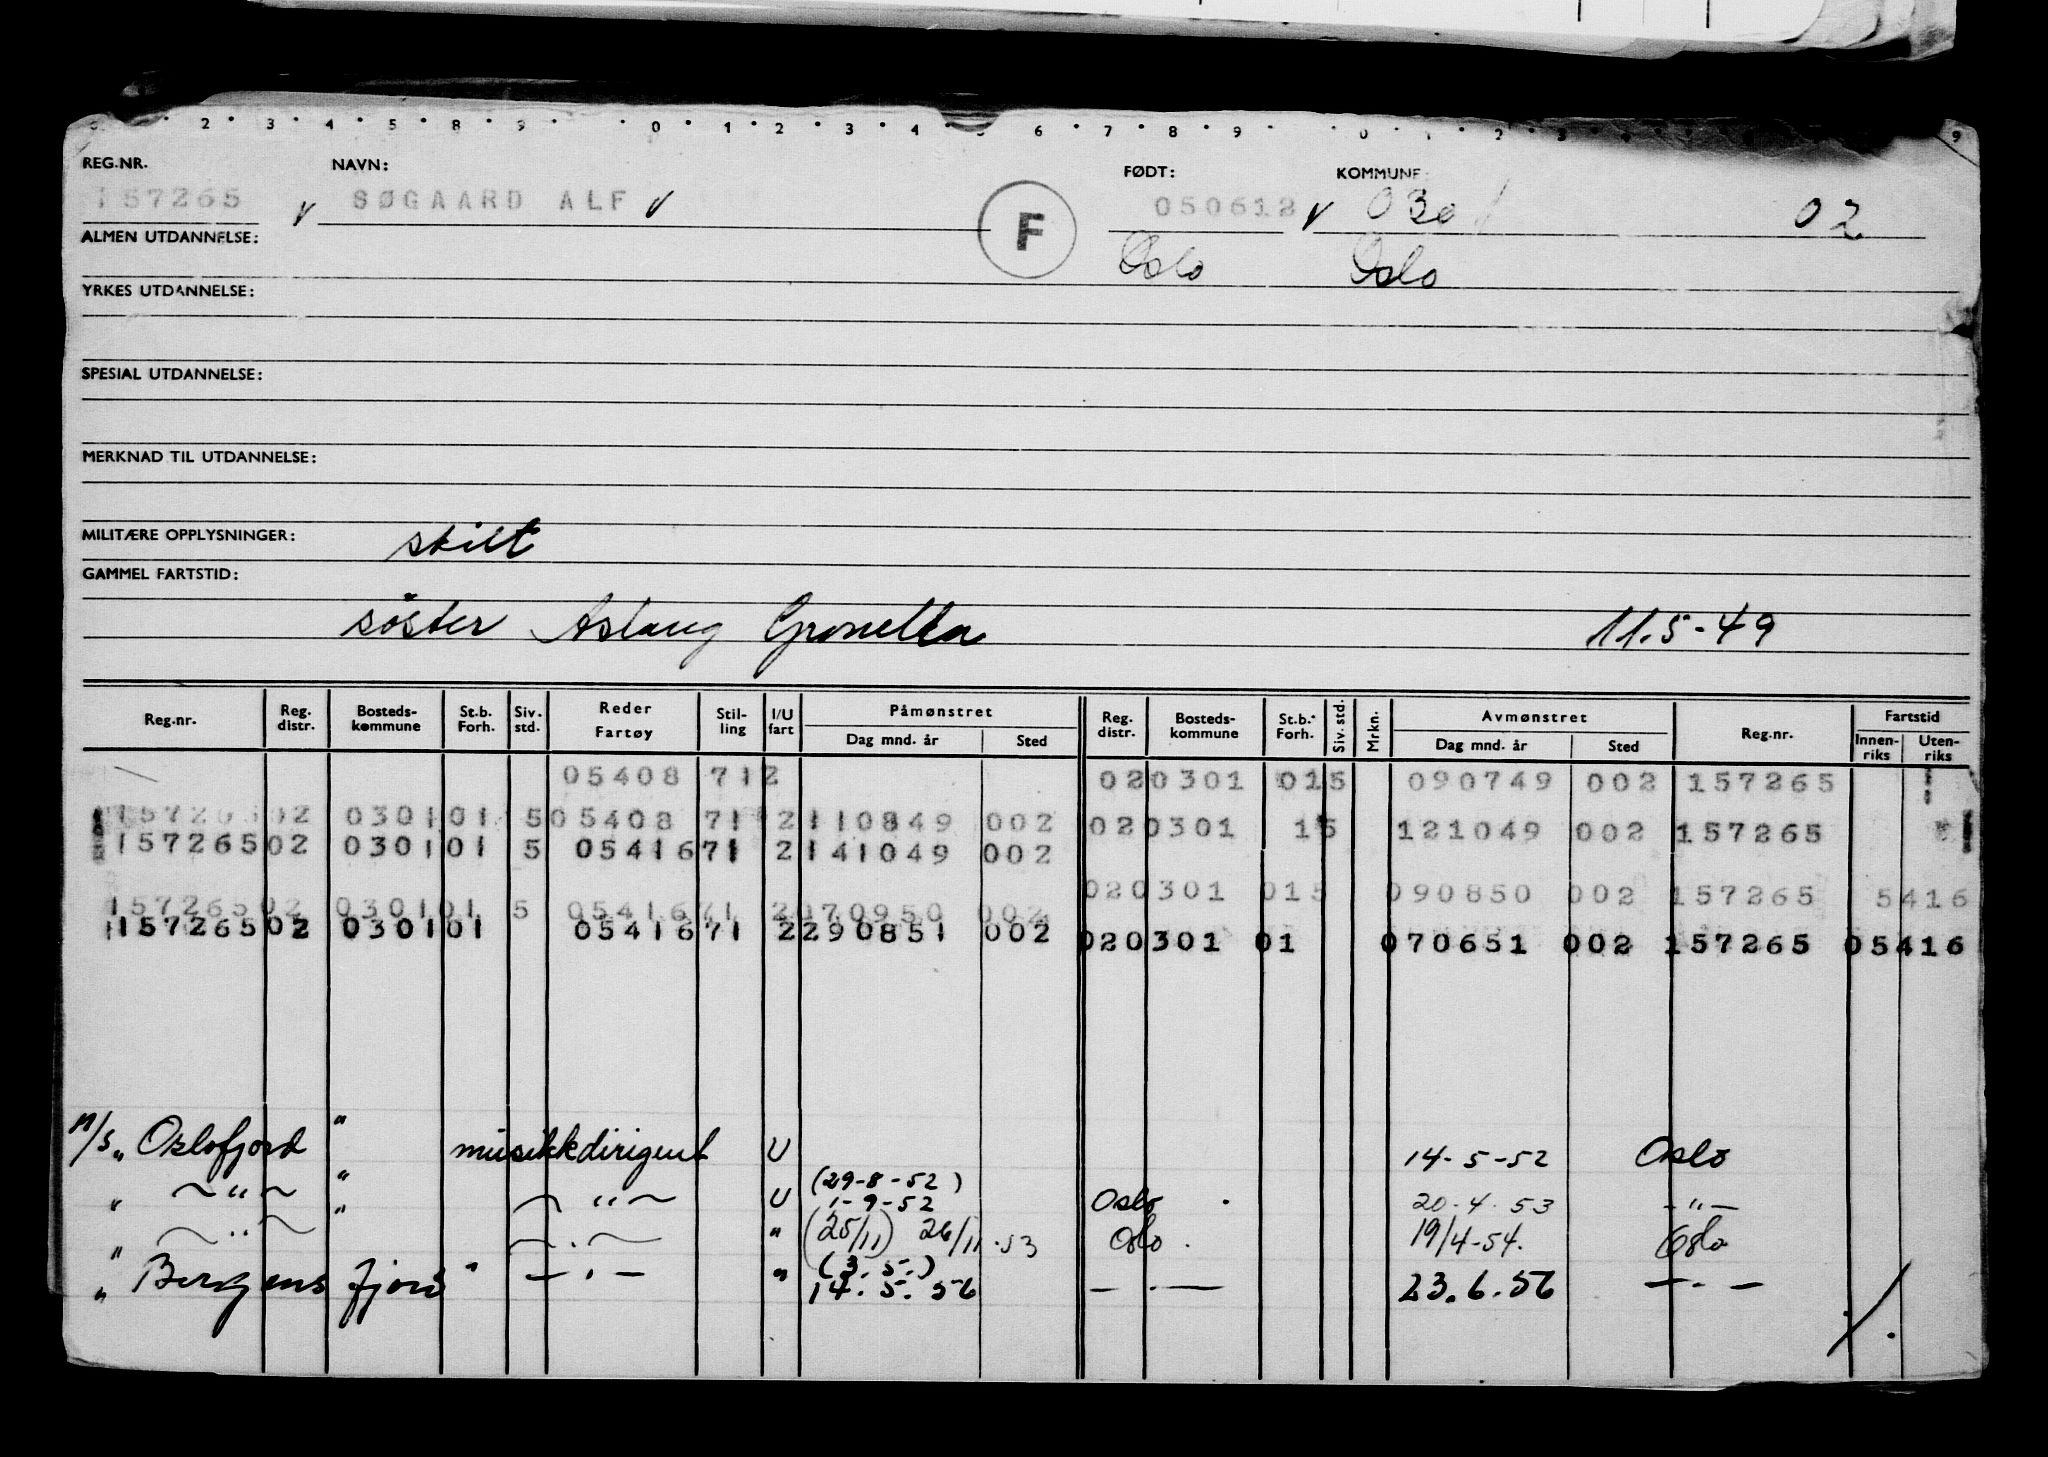 REG.NR. NAVN: FØDT: KOMMUNE:
157265 v SØGAARD ALF v F 050612 v 030 02
ALMEN UTDANNELSE: Oslo Oslo
YRKES UTDANNELSE:
SPESIAL UTDANNELSE:
MERKNAD TIL UTDANNELSE:
MILITÆRE OPPLYSNINGER: skilt
GAMMEL FARTSTID:
søster Aslaug 11.5-49
Reg.nr. Reg. distr. Bosteds-kommune St.b. Forh. Siv. std. Reder Fartøy Stil-ling I/U fart Påmønstret Dag mnd. år Sted Reg. distr. Bosteds-kommune St.b. Forh. Siv. std. Mrkn. Avmønstret Dag mnd. år Sted Reg.nr. Fartstid Innen-riks Uten-riks
05408 712 020301 015 090749 002 157265
157265 02 0301 01 5 05408 71 2 110849 002 020301 15 121049 002 157265
157265 02 0301 01 5 05416 71 2 141049 002
020301 015 090850 002 157265 5416
157265 02 0301 01 5 05416 71 2 070950 002
157265 02 0301 01 05416 71 2 290851 002 020301 01 070651 002 157265 05416
M/S „ Oslofjord " musikkdirigent U 14-5-52 Oslo
„ ~"~ " ~"~ U (29-8-52) 1-9-52 Oslo 20.4.53 -"-
" ~"~ " ~.~ " (25/11) 26/11.53 Oslo 19/4-54. Oslo
„ Bergensfjord " -"- " (3.5.) 14.5.56 -"- 23.6.56 -"-